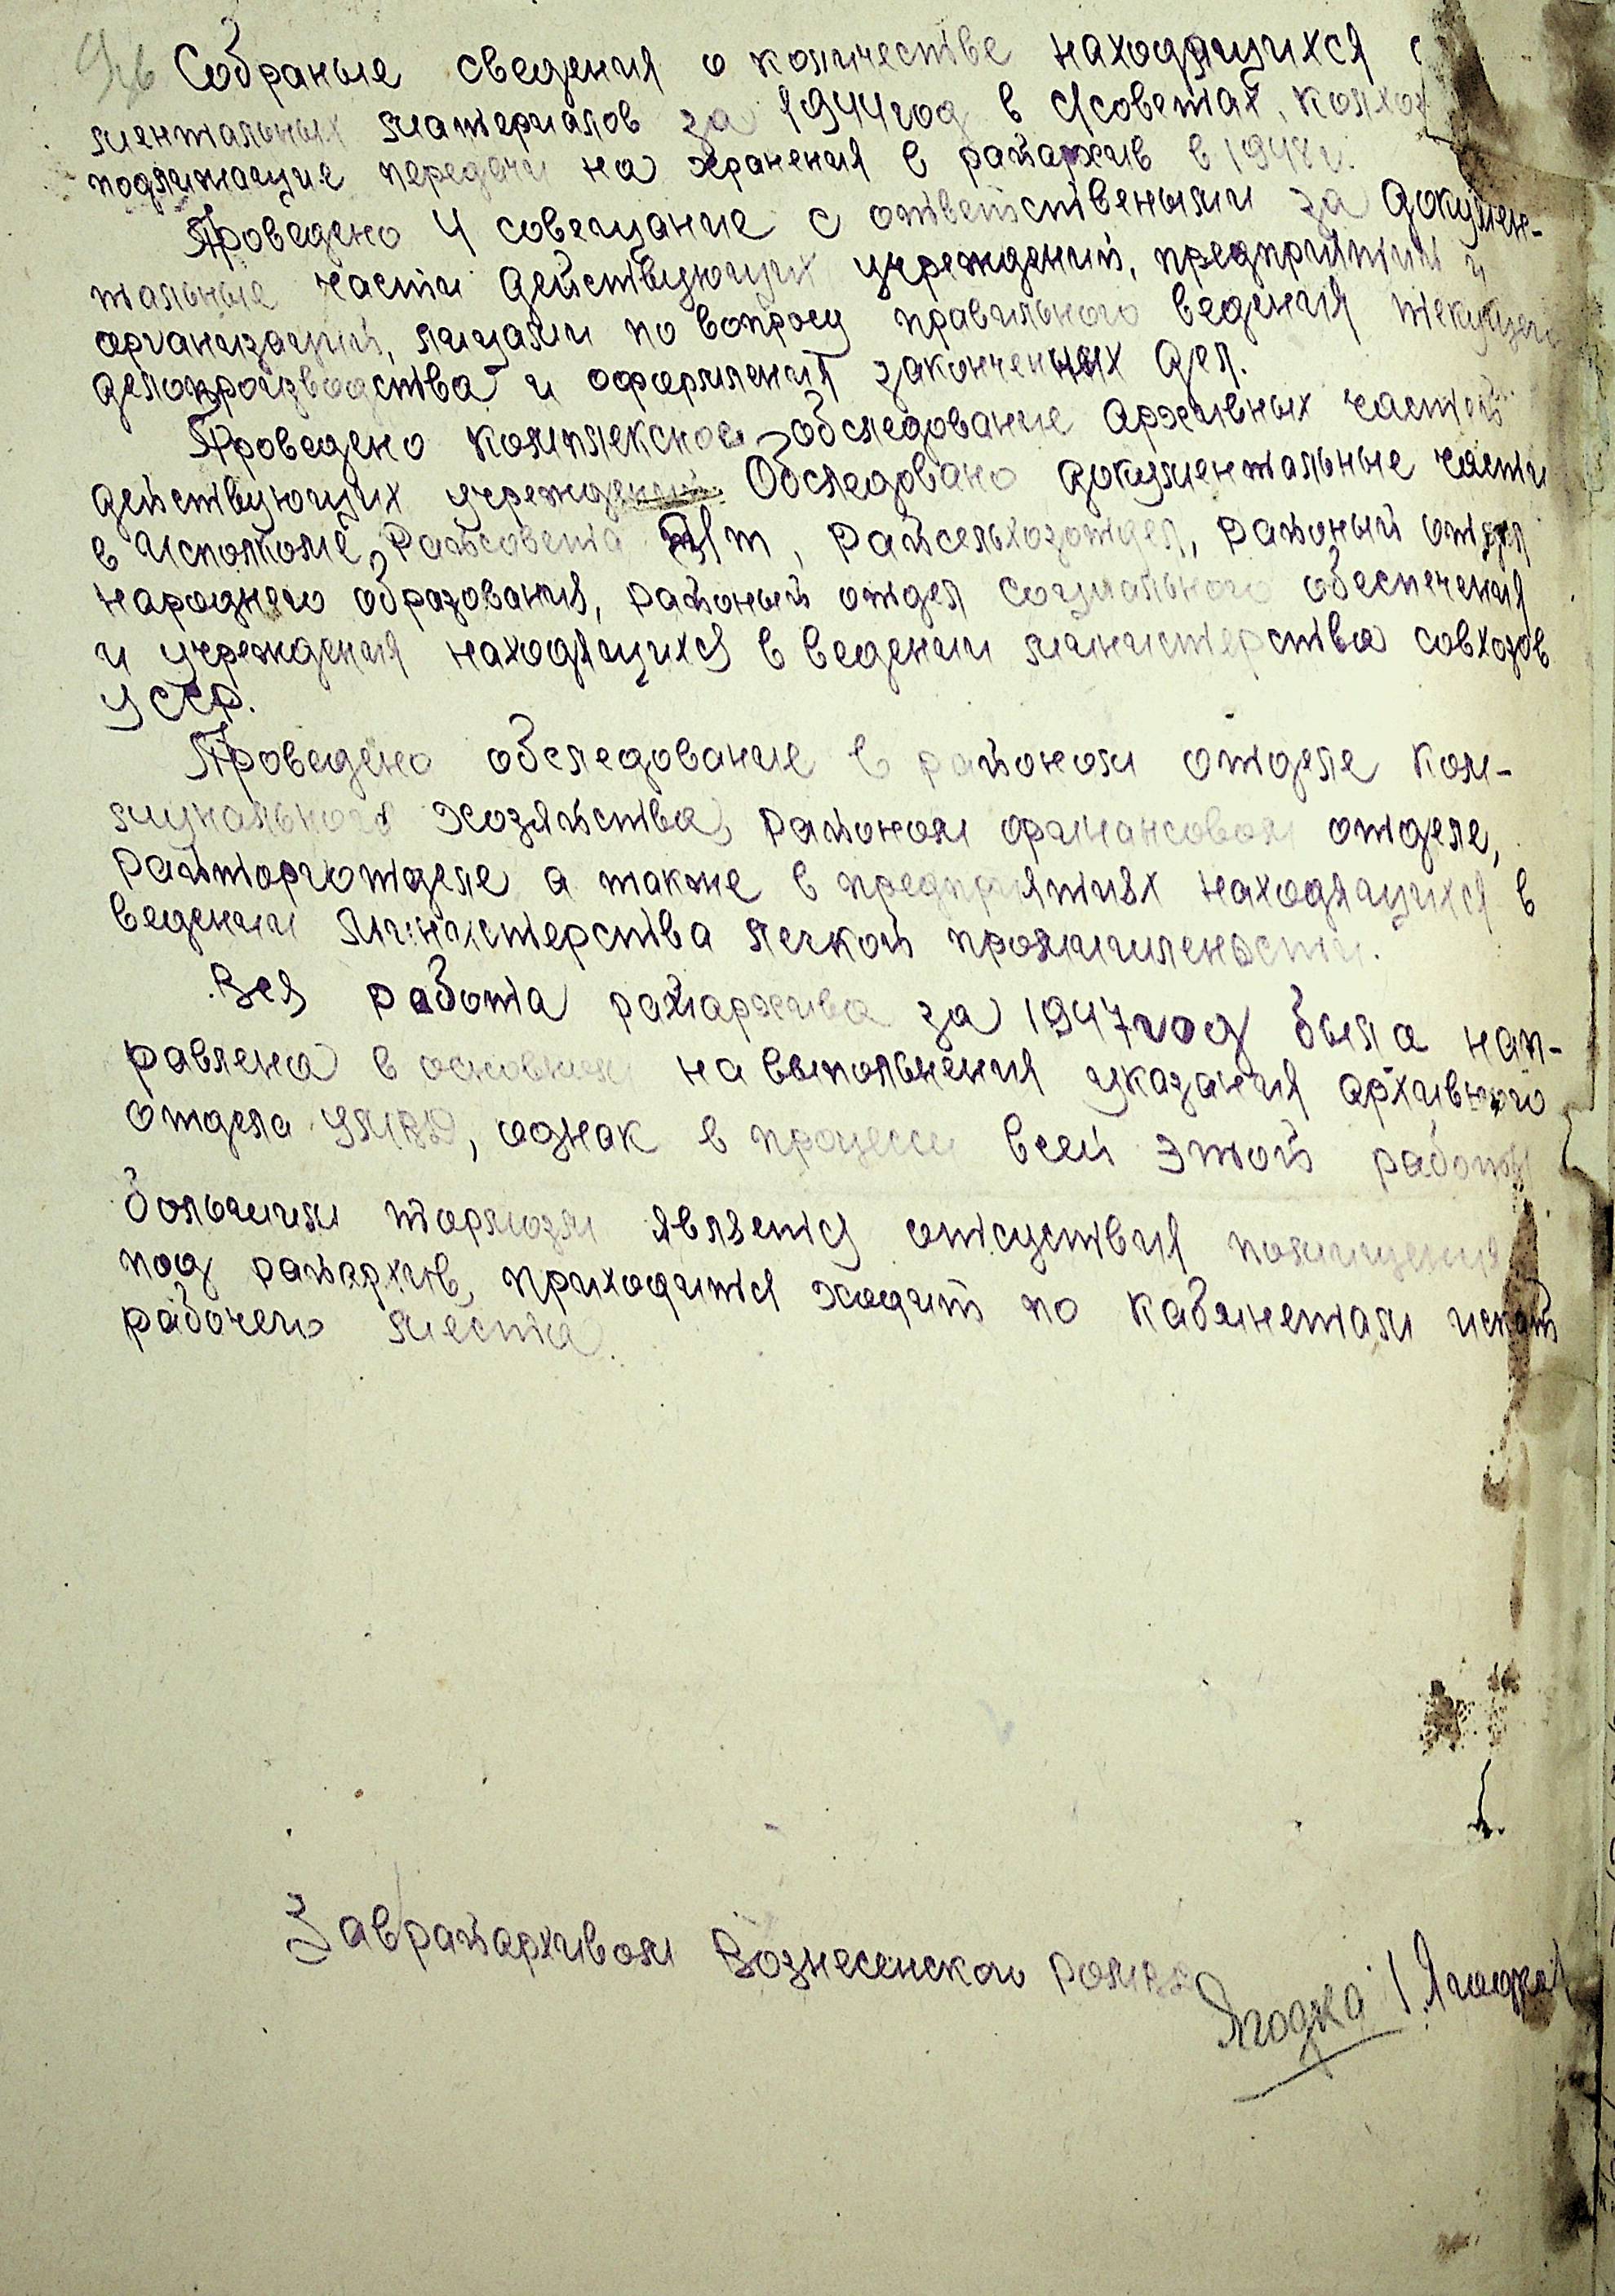 Собраные сведения о количестве находящихся
ментальных материалов за 1944 год в с/советах, колхоз
подлижащие передачи на хранения в райархив в 1948 г.
Проведено 4 совещание с ответствеными за докумен-
тальные части действующих учреждений, предприятий и
организаций, лицами по вопросу правильного ведения текущего
делопроизводства и оформления законченных дел.
Проведено комплексное обследование архивных частей
действующих учреждений. Обследовано документальные части
в исполкоме, Райсовета д/т, Райсельхозотдел, районый отдел
народнего образования, районый отдел социального обеспечения
и учреждения находящихся в ведении министерства совхозов
УССР.
Проведено обследование в районом отделе ком-
мунального хозяйства, районом финансовом отделе,
Райторготделе а также в предприятиях находящихся в
ведении министерства легкой промышлености.
Вся работа райархива за 1947 год была нап-
равлена в основном на выпольнения указания архивного
отдела УМВД, однак в процессе всей этой работы
большим тормозм является отсуствия помищения
под райархив, приходится ходить по кабинетам искать
рабочего места.
Заврайархивом Вознесенского РОМВД
Ягодка / Ягодка /